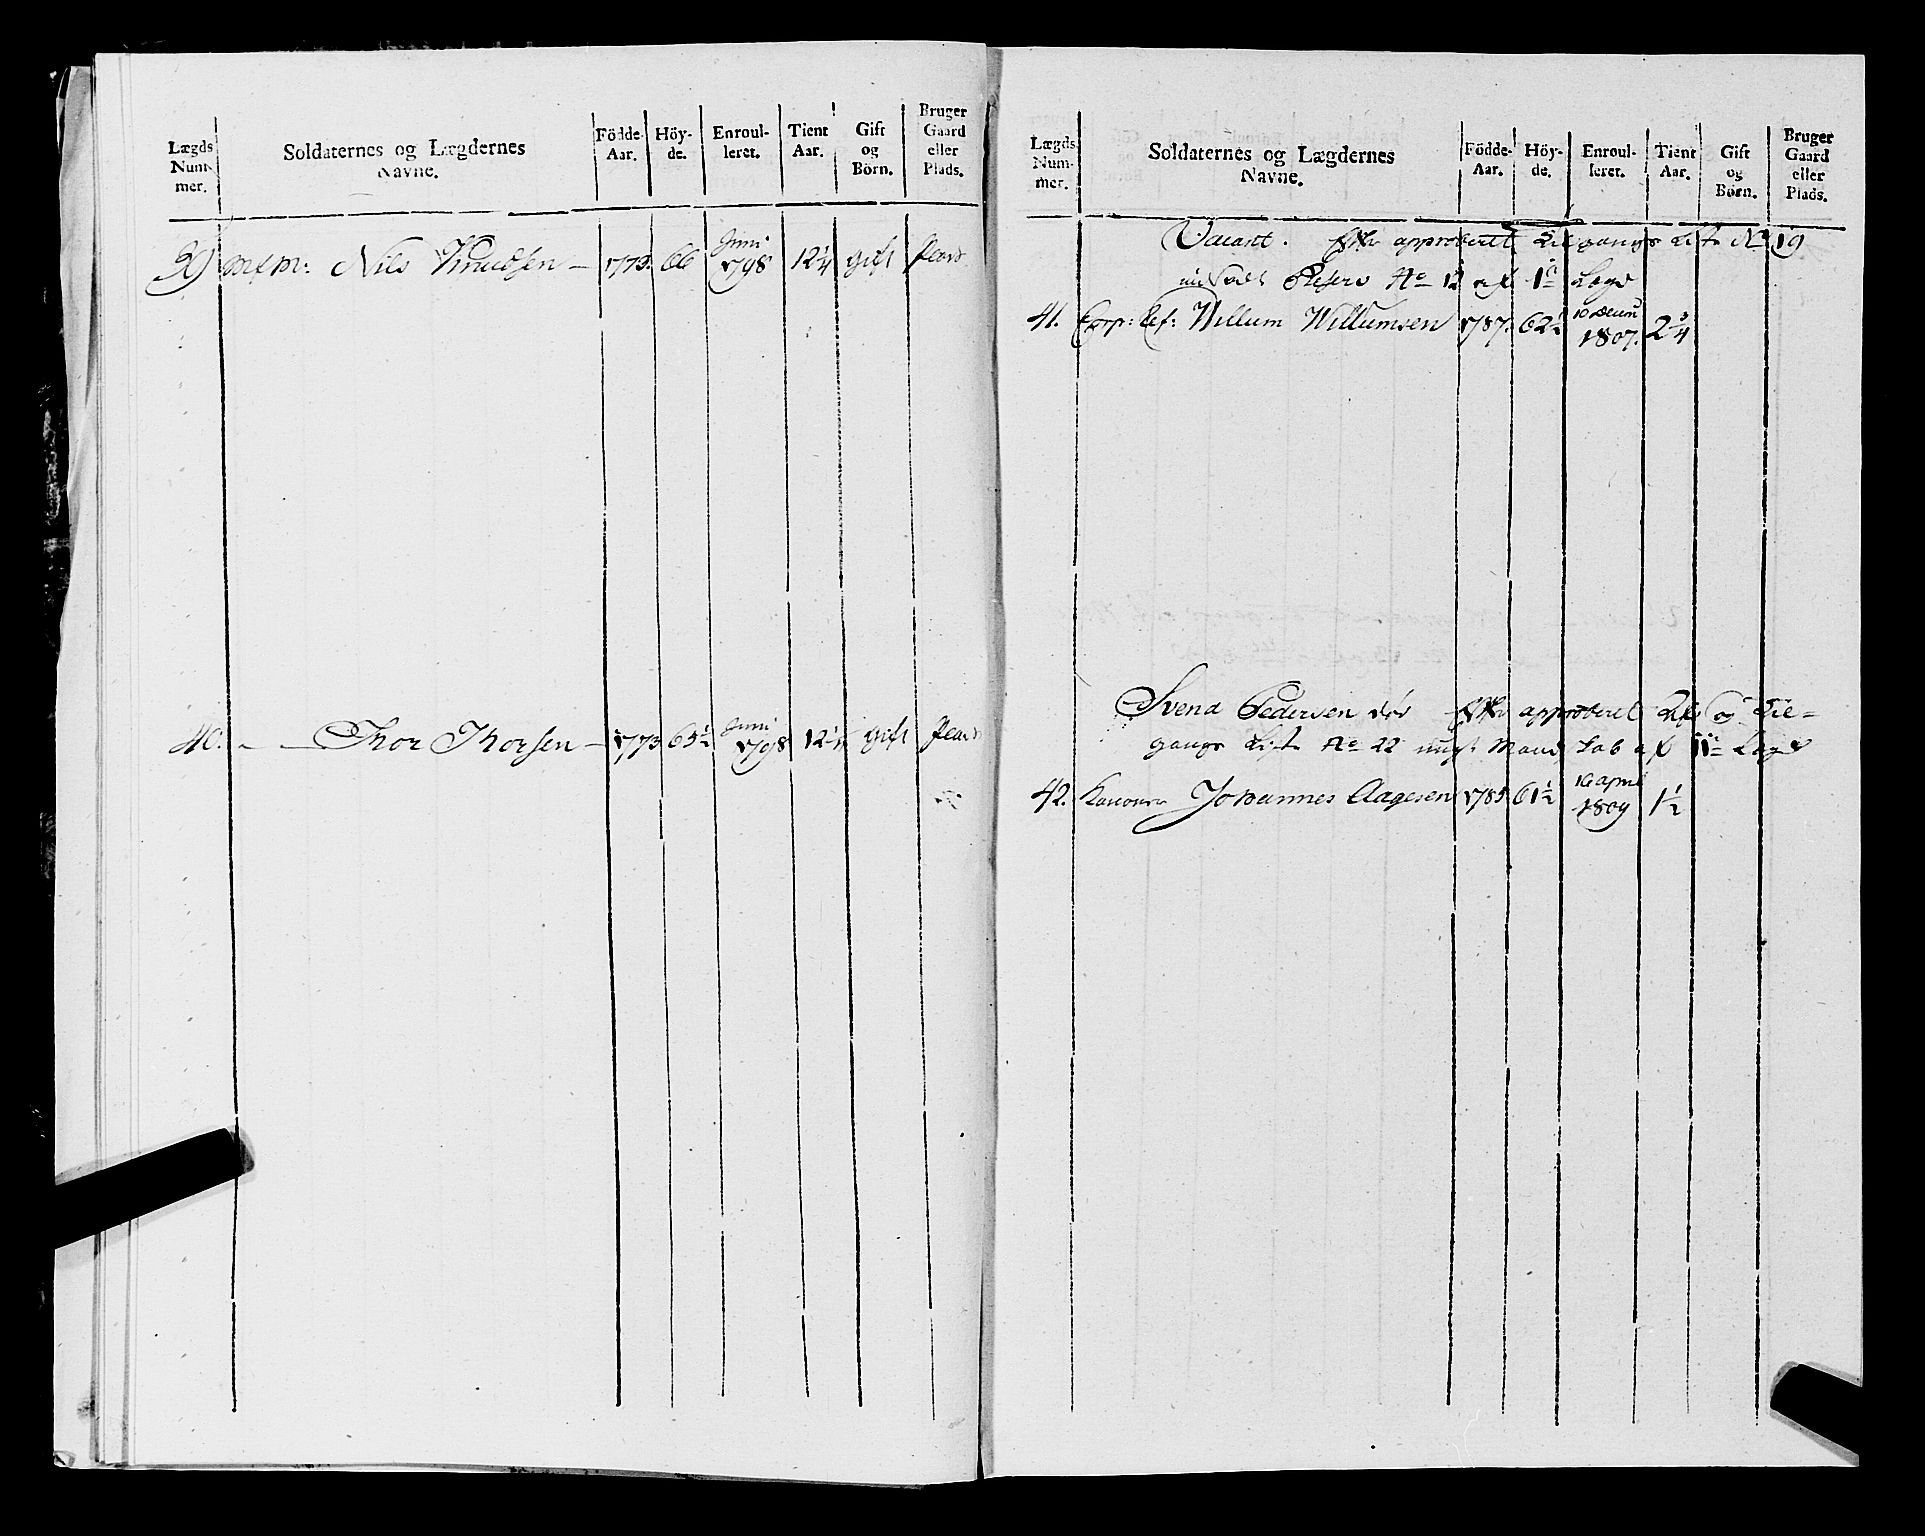 Lægds Num- mer.
Soldaternes og Lægdernes Navne.
Födde- Aar.
Höy- de.
Enroul- leret.
Tient Aar.
Gift og Børn.
Bruger Gaard eller Plads.
39 Nils Knudsen — 1773. 66 Juni 1798 12 1/4 gift Plads
40. - — Thor Thorsen — 1773 65 1/2 Juni 1798 12 1/4 gift Plads
Lægds Num- mer.
Soldaternes og Lægdernes Navne.
Födde- Aar.
Höy- de.
Enroul- leret.
Tient Aar.
Gift og Børn.
Bruger Gaard eller Plads.
Vacant. Efter approberet Tilgangs Liste No 19
indsadt Reserv No 12 af 1te Lægd
41. Corp: Ref: Willum Willumsen 1787. 62 1/2 10 Decem 1807. 2 3/4
Svend Pedersen død Efter approberet Af og Til=
gangs Liste No 22 af 11te Lægd
42. Johannes Aagesen 1785 61 1/2 16 April 1809 1 1/2